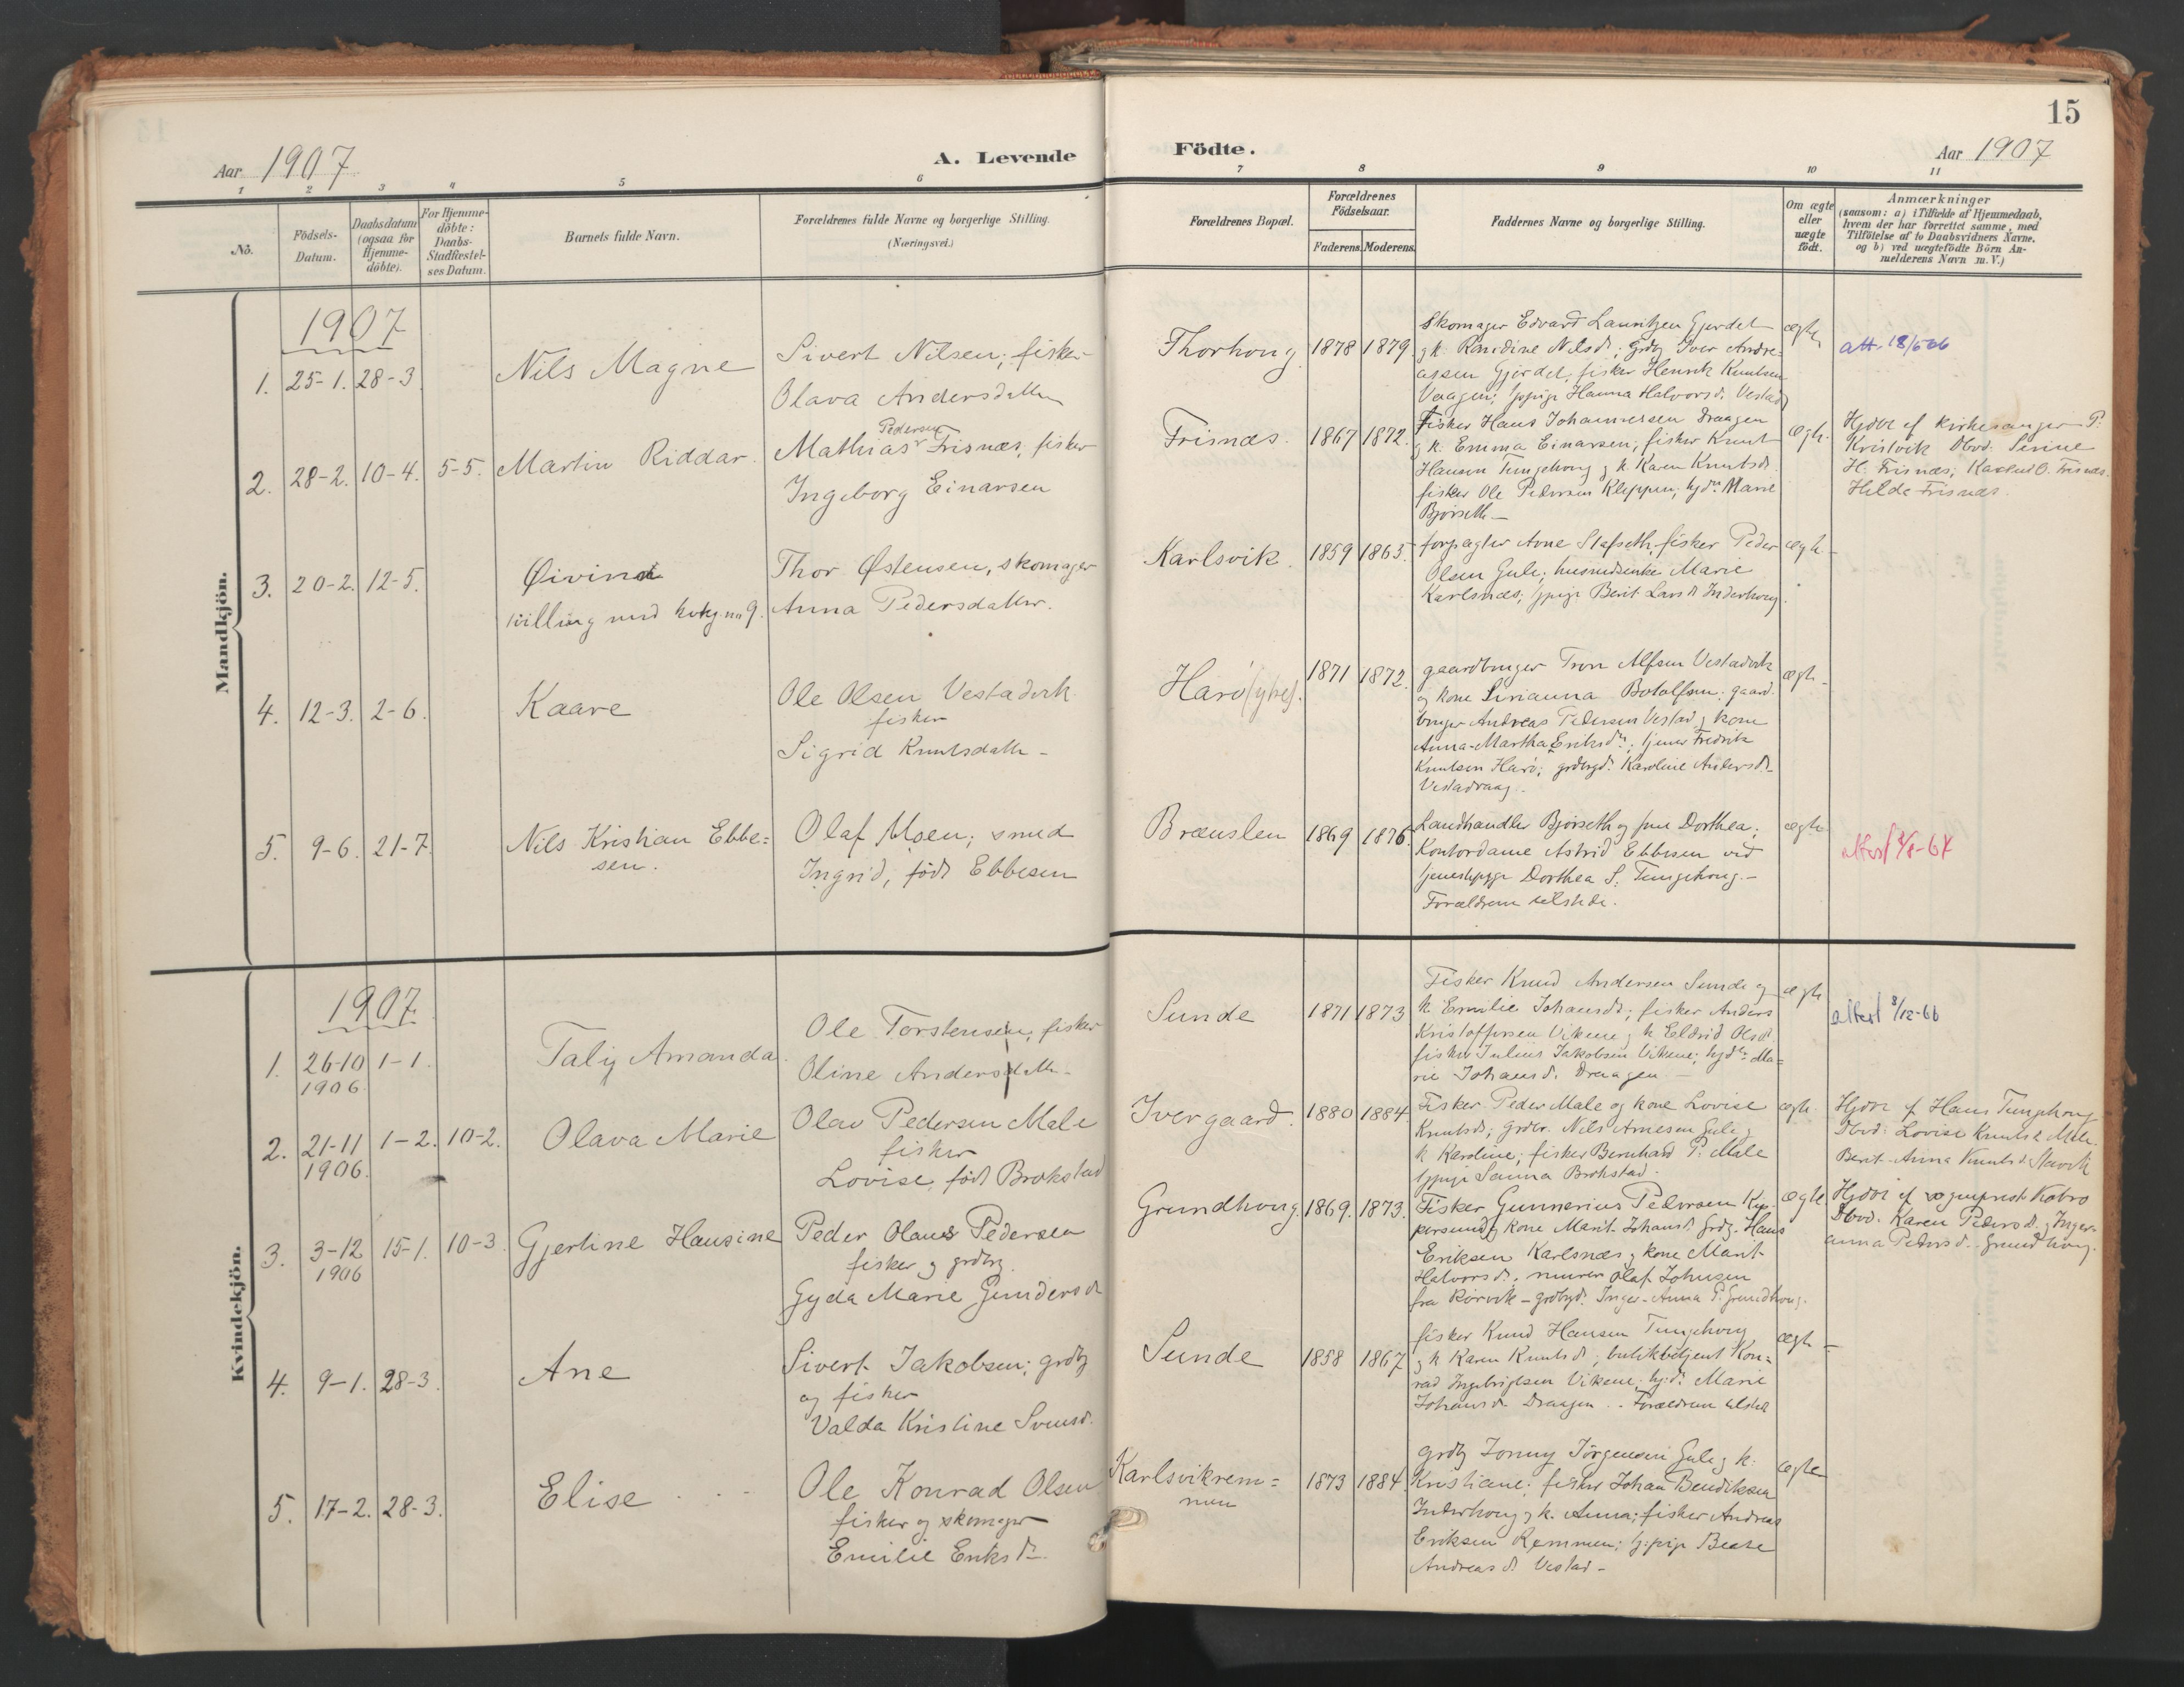 15
Aar 1907
A. Levende
Födte.
Aar 1907
1 2 3 4 5 6 7 8 9 10 11
No.
Födsels-
Datum.
Daabsdatum
(ogsaa for
Hjemme-
döbte).
For Hjemme-
döbte:
Daabs-
Stadfæstel-
ses Datum.
Barnets fulde Navn.
Forældrenes fulde Navne og borgerlige Stilling.
(Næringsvei.)
Forældrenes Bopæl.
Forældrenes
Födselsaar.
Faderens. Moderens.
Faddernes Navne og borgerlige Stilling.
Om ægte
eller
uægte
födt.
Anmærkninger
(saasom: a) i Tilfælde af Hjemmedaab,
hvem der har forrettet samme, med
Tilföielse af to Daabsvidners Navne,
og b) ved uægtefödte Börn An-
melderens Navn m. V.)
Mandkjön.
1907
1. 25-1. 28-3.
Nils Magne
Sivert Nilsen; fisker
Olava Andersdatter
Thorhoug 1878 1879.
Skomager Edvard Lauritzen Gjerdet
og k. Randine Nilsd.; grdbr Iver Andre-
assen Gjerdet, fisker Henrik Knutsen
Vaagen; Hanna Halvorsd. Vestad
ægte
att. 18/6 66
2. 28-2. 10-4. 5-5.
Martin Riddar.
Pedersen
Mathias Frisnæs, fisker
Ingeborg Einarsen
Frisnæs. 1867 1872.
Fisker Hans Johannessen Draagen
og k. Emma Einarsen; fisker Knut
Hansen Tungehoug og k. Karen Knutsd.
fisker Ole Pedersen Kleppen, Marie
Bjørseth -
ægte.
Hjdøbt af kirkesanger P.
Kristvik Dbvd: Serine
H. Frisnæs, O. Frisnæs.
Helde Frisnæs.
3. 20-2. 12-5.
Øivind
tvilling med kvkj. no 9.
Thor Østensen, skomager
Anna Pedersdatter.
Karlsvik. 1859 1863.
forpagter Arne Stafseth, fisker Peder
Olsen Gule; husmdsenke Marie
Karlsnæs; Berit Larsd. Inderhoug.
ægte -
4. 12-3. 2-6.
Kaare
Ole Olsen Vestadvik
fisker
Sigrid Knutsdatter -
Harø (ytre). 1871 1872.
gaardbruger Tron Alfsen Vestadvik
og kone Sirianna Botolfsen. gaard-
bruger Andreas Pedersen Vestad og kone
Anna-Martha Eriksdtr; Fredrik
Knutsen Harø; Karoline Andersd.
Vestadvaag.
ægte -
5. 9-6. 21-7.
Nils Kristian Ebbe=
sen.
Olaf Moen; smed
Ingrid, født Ebbesen
Brænslen 1869 1876.
Landhandler Bjørseth og frue Dorthea;
Kontordame Astrid Ebbesen ved
tjenestepige Dorthea S. Tungehoug. -
Forældrene tilstede.
ægte
attest 3/8-64
Kvindekjön.
1907
1. 26-10 1-1.
1906.
Taliy Amanda.
Ole Torstensen, fisker
Oline Andersdatter -
Sunde 1871 1873
Fisker Knud Andersen Sunde og
k. Emilie Johansd.; fisker Anders
Kristoffersen Vikene og k. Eldrid Olsd.
fisker Julius Jakobsen Vikene; Ma-
rie Johansd. Draagen -
ægte
attest 8/12-66
2. 21-11 1-2. 10-2.
1906.
Olava Marie
Olav Pedersen Male
fisker
Lovise, født Brokstad
Ivergaard. 1880 1884.
Fisker Peder Male og kone Lovise
Knutsd; grdbr. Nils Arnesen Gule og
k. Karoline; fisker Bernhard P. Male
Sanna Brokstad.
ægte.
Hjdøbt af Hans Tungehoug
Dbvd: Lovise Knutsd. Male.
Berit-Anna Knutsd.
3. 3-12 15-1. 10-3.
1906
Gjertine Hansine
Peder Olaus Pedersen
fisker og grdbrg.
Gyda Marie Gundersd.
Grundhoug. 1869. 1873.
Fisker Gunnerius Pedersen
og kone Marit Johansd. grdbr. Hans
Eriksen Karlsnæs og kone Marit
Halvorsd.; murer Olaf Johnsen
fra Rørvik - Inger-Anna P. Grundhoug.
ægte
Hjdøbt af sogneprest Kobro
Dbvd. Karen Pedersd. og Inger-
anna Pedersd. Grundhoug.
4. 9-1. 28-3.
Ane
Sivert Jakobsen; grdbr
og fisker
Valda Kristine Svensd.
Sunde 1858 1867
fisker Knud Hansen Tungehoug
og k. Karen Knutsd.; butikbetjent Kon-
rad Ingebrigtsen Vikene; Marie
Johansd. Draagen. - Forældrene tilstede
ægte -
5. 17-2. 28-3.
Elise
Ole Konrad Olsen
fisker og skomager
Emilie Eriksd.
Karlsvikrem=
men
1873 1884
grdbr Jonny Jørgensen Gule og k.
Kristiane; fisker Johan Bendiksen
Inderhoug og k. Anna; fisker Andreas
Eriksen Remmen; Beate
Andreasd. Vestad -
ægte